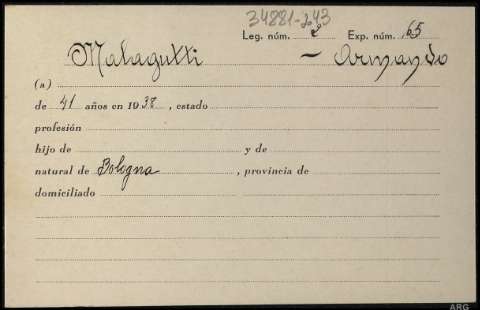 34881-243
Leg. núm. 2 Exp. núm. 65
Malagutti - Armando
(a)
de 41 años en 1938, estado
profesión
hijo de y de
natural de Bologna, provincia de
domiciliado
ARG